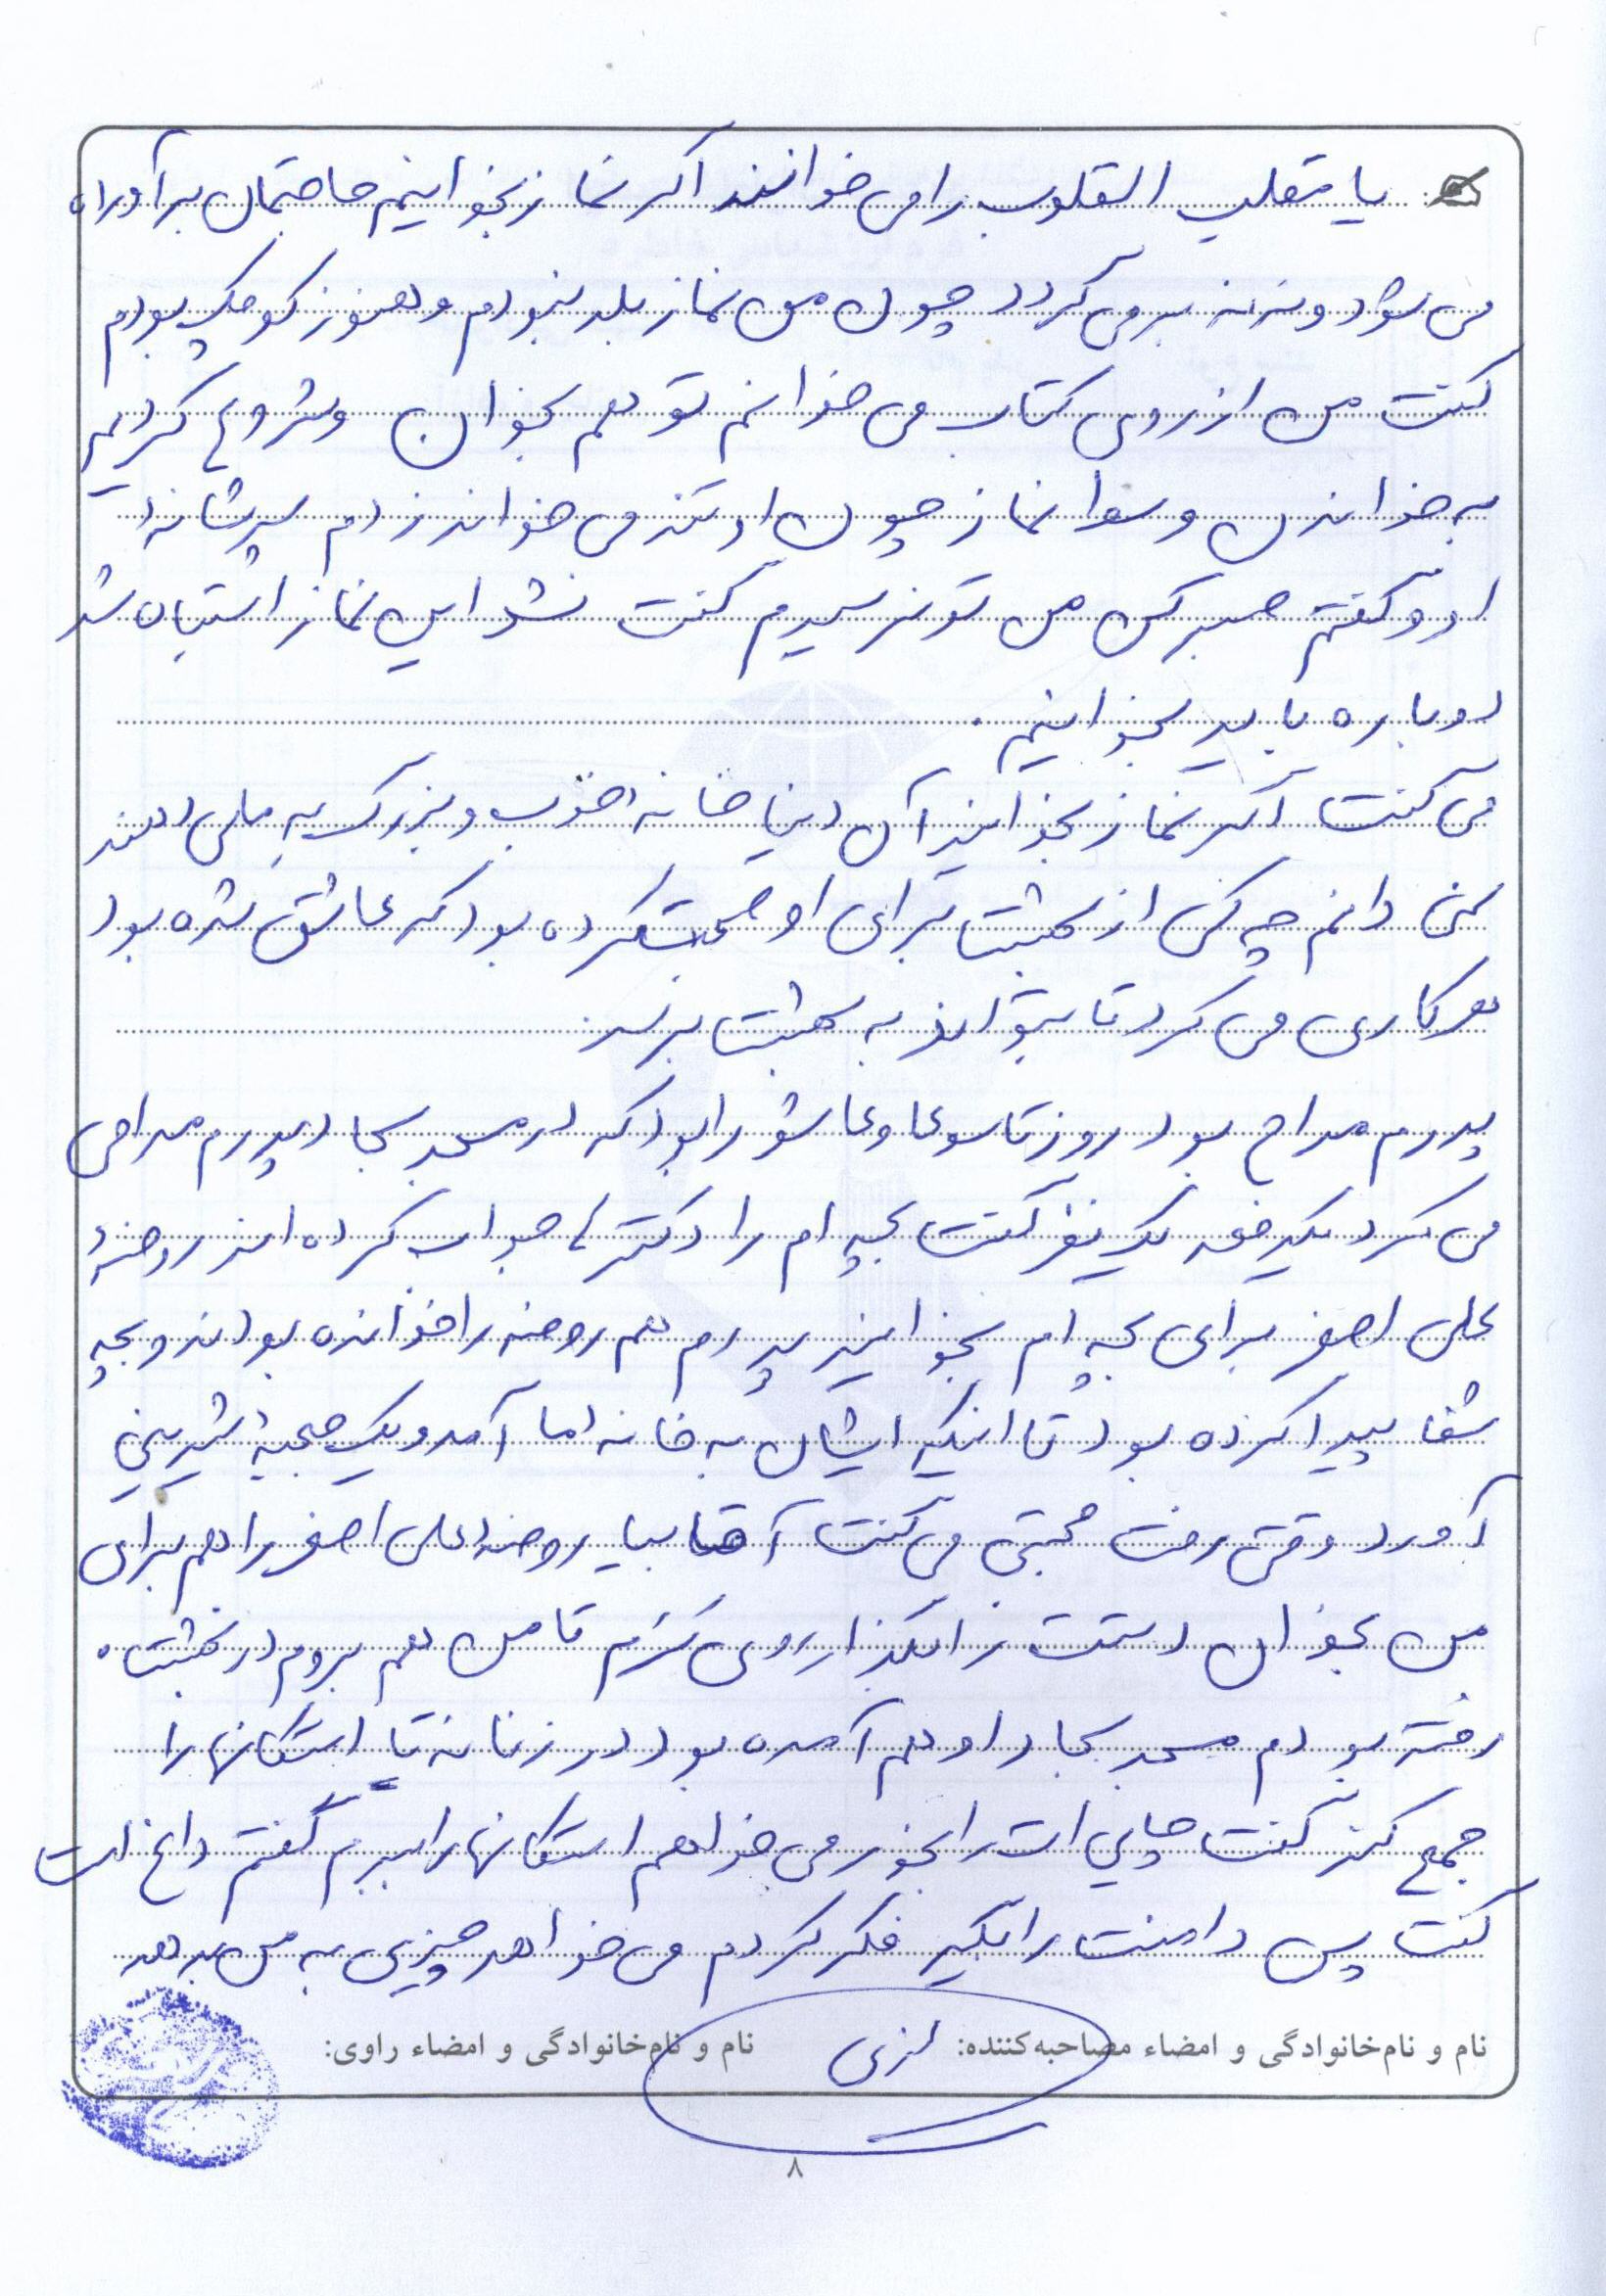 یا مقلب القلوب را می خوانند اگر نماز بخوانیم حاجتمان برآورده
می شود و ننه برمی گردد چون من نماز بلد نبودم و هنوز کوچک بودم
گفت من از روی کتاب می خوانم تو هم بخوان و شروع کردیم
به خواندن وسط نماز چون او تند می خواند زدم سرشانه
او و گفتم صبر کن من تو نرسیدم گفت نشد این نماز اشتباه شد
دوباره باید بخوانیم.
می گفت اگر نماز بخوانید آن دنیا خانه خوب و بزرگ به ما می دهند
نمی دانم چه کسی از بهشت برای او صحبت کرده بود که عاشق شده بود
هر کاری می کرد تا بتواند به بهشت برسد.
پدرم مداح بود روز تاسوعا و عاشورا بود که در مسجد سجاد پدرم مداحی
می کرد یکدفعه یک نفر گفت بچه ام را دکترها جواب کرده اند روضه
علی اصغر برای بچه ام بخوانید پدرم هم روضه را خوانده بودند و بچه
شفا پیدا کرده بود تا اینکه ایشان به خانه ما آمد و یک جعبه شیرینی
آورد وقتی رفت مجتبی می گفت آقا بیا روضه علی اصغر را هم برای
من بخوان دستت را بگذار روی سرم تا من هم بروم در بهشت.
رفته بودم مسجد سجاد او هم آمده بود در زنانه تا استکانها را
جمع کند گفت چایی ات را بخور می خواهم استکانها را ببرم گفتم داغ است
گفت پس دامنت را بگیر فکر کردم می خواهد چیزی به من بدهد
نام و نام‌خانوادگی و امضاء مصاحبه‌کننده: نام و نام‌خانوادگی و امضاء راوی:
۸